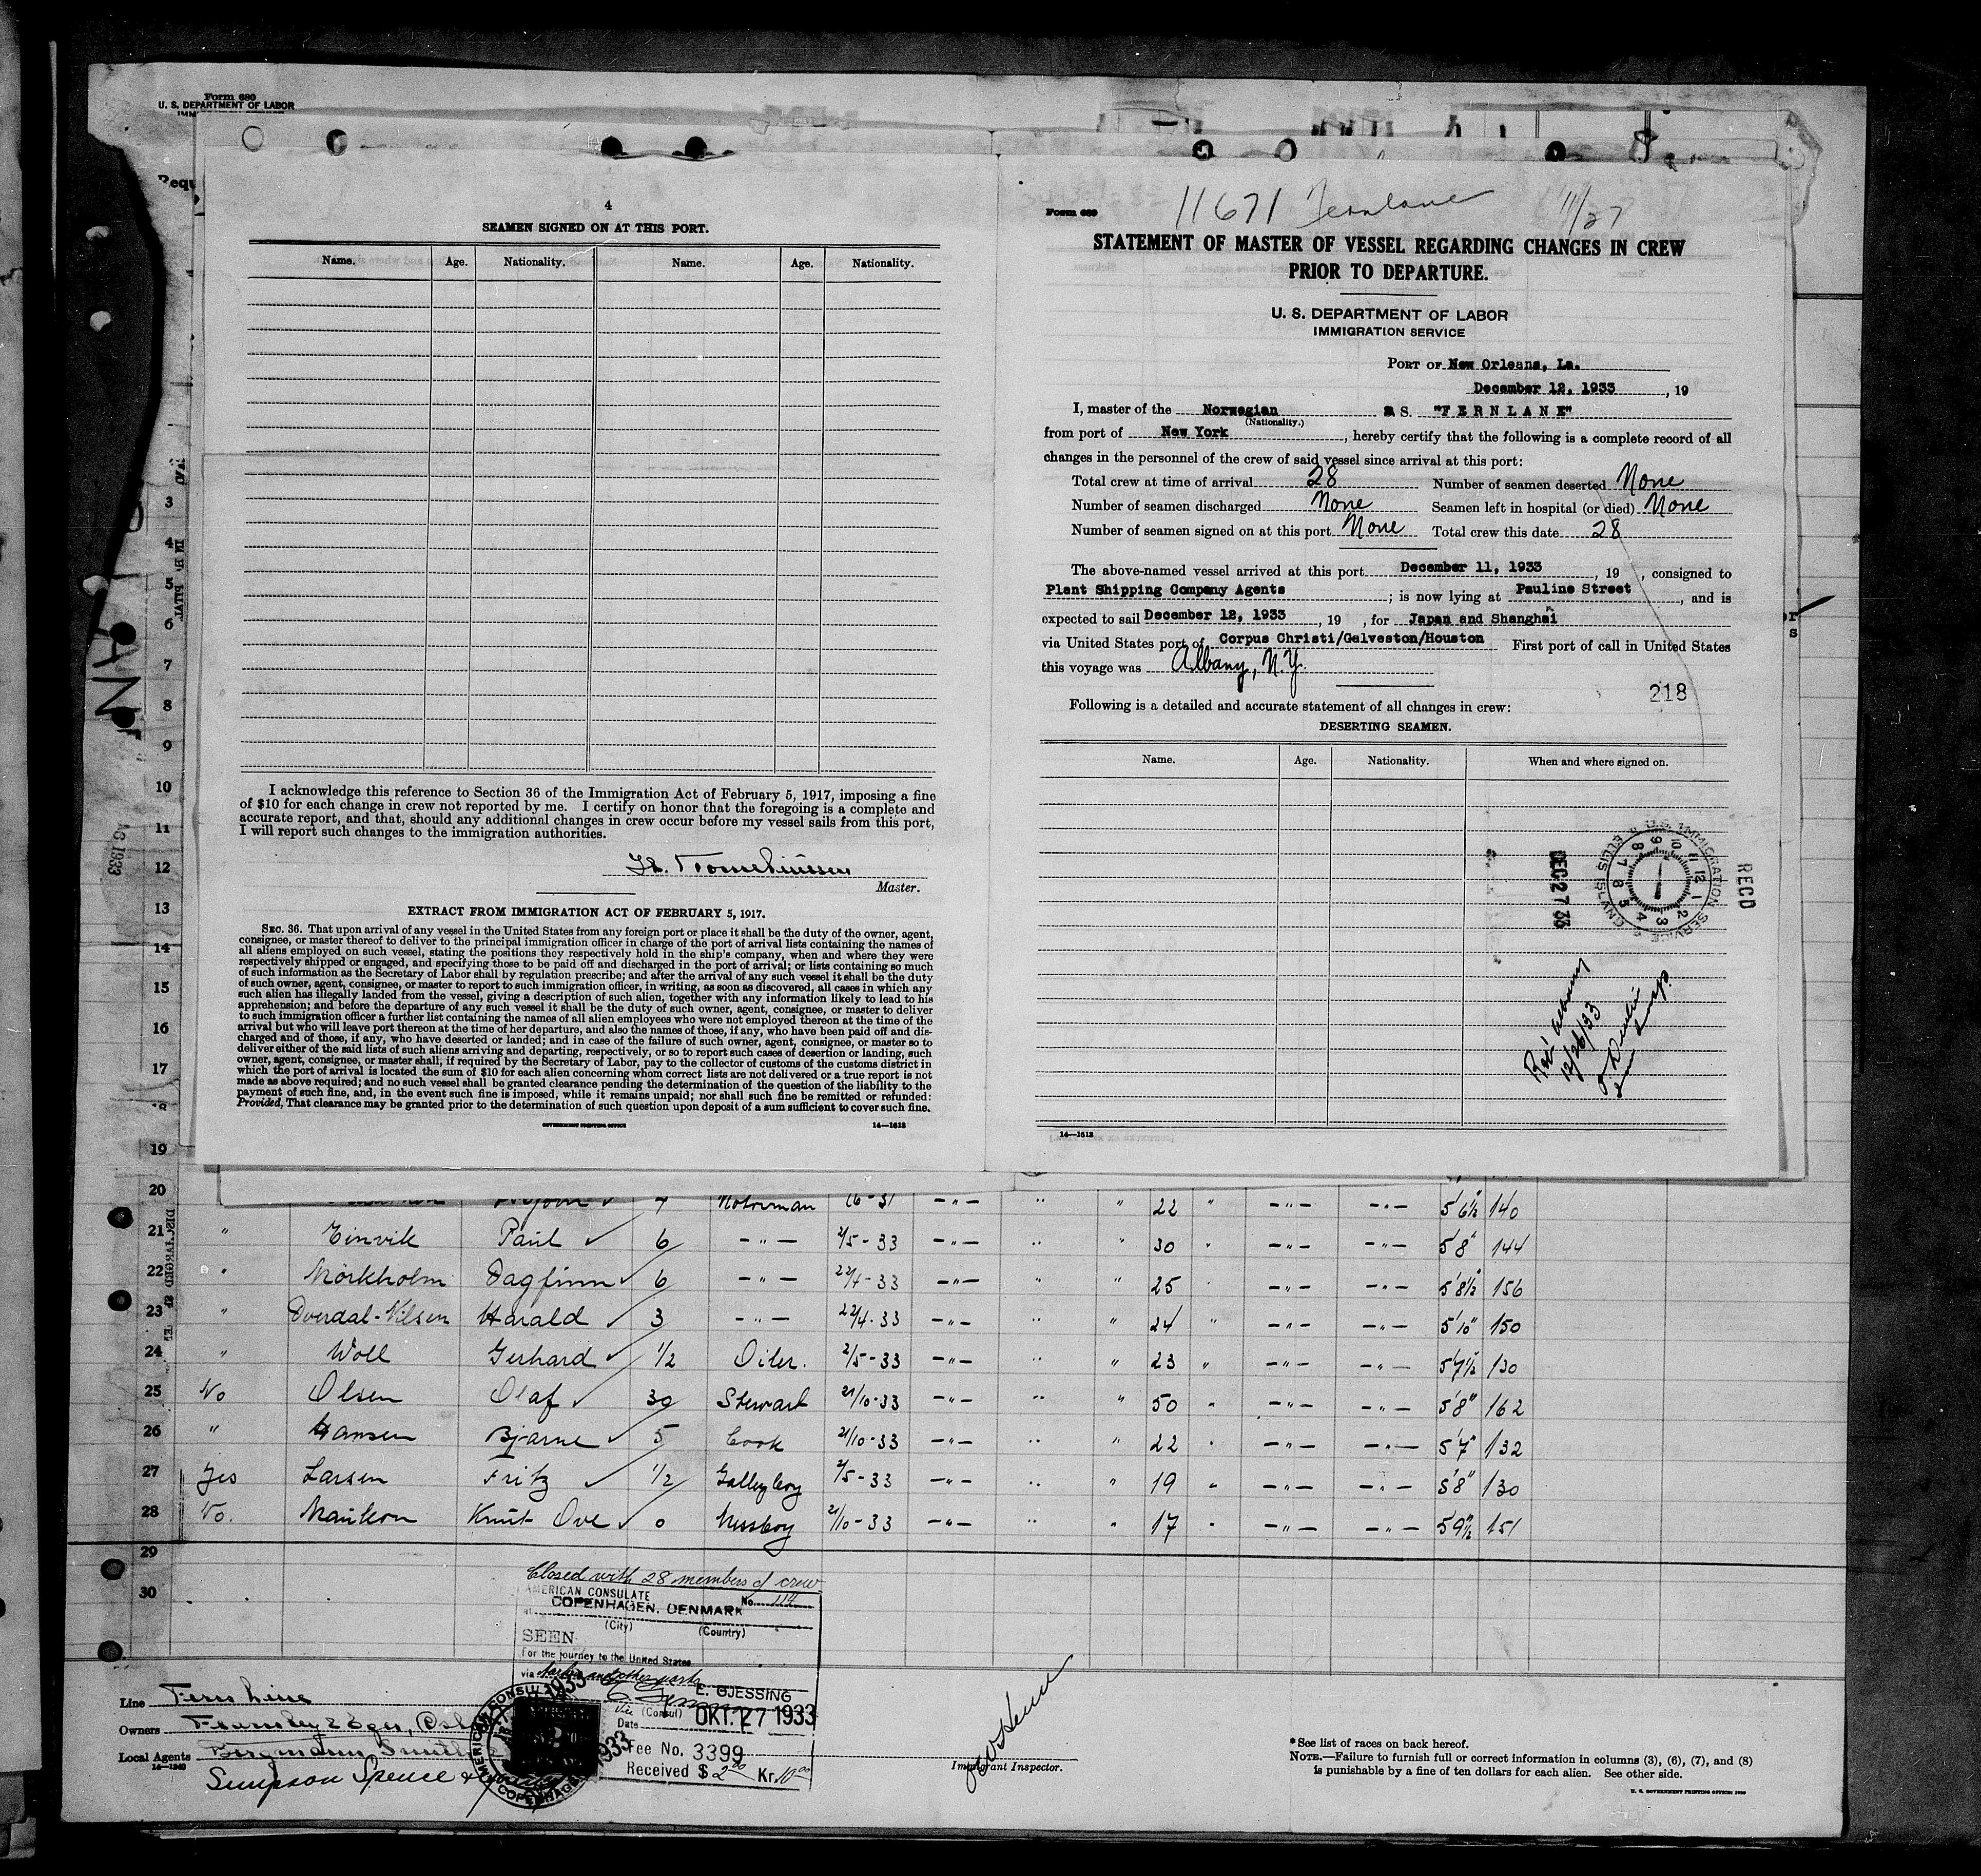 Form 680
U. S. DEPARTMENT OF LABOR
4
SEAMEN SIGNED ON AT THIS PORT.
Name. Age. Nationality. Name. Age. Nationality.
I acknowledge this reference to Section 36 of the Immigration Act of February 5, 1917, imposing a fine
of $10 for each change in crew not reported by me. I certify on honor that the foregoing is a complete and
accurate report, and that, should any additional changes in crew occur before my vessel sails from this port,
I will report such changes to the immigration authorities.
Master.
EXTRACT FROM IMMIGRATION ACT OF FEBRUARY 5, 1917.
SEC. 36. That upon arrival of any vessel in the United States from any foreign port or place it shall be the duty of the owner, agent,
consignee, or master thereof to deliver to the principal immigration officer in charge of the port of arrival lists containing the names of
all aliens employed on such vessel, stating the positions they respectively hold in the ship's company, when and where they were
respectively shipped or engaged, and specifying those to be paid off and discharged in the port of arrival; or lists containing so much
of such information as the Secretary of Labor shall by regulation prescribe; and after the arrival of any such vessel it shall be the duty
of such owner, agent, consignee, or master to report to such immigration officer, in writing, as soon as discovered, all cases in which any
such alien has illegally landed from the vessel, giving a description of such alien, together with any information likely to lead to his
apprehension; and before the departure of any such vessel it shall be the duty of such owner, agent, consignee, or master to deliver
to such immigration officer a further list containing the names of all alien employees who were not employed thereon at the time of the
arrival but who will leave port thereon at the time of her departure, and also the names of those, if any, who have been paid off and dis-
charged and of those, if any, who have deserted or landed; and in case of the failure of such owner, agent, consignee, or master so to
deliver either of the said lists of such aliens arriving and departing, respectively, or so to report such cases of desertion or landing, such
owner, agent, consignee, or master shall, if required by the Secretary of Labor, pay to the collector of customs of the customs district in
which the port of arrival is located the sum of $10 for each alien concerning whom correct lists are not delivered or a true report is not
made as above required; and no such vessel shall be granted clearance pending the determination of the question of the liability to the
payment of such fine, and, in the event such fine is imposed, while it remains unpaid; nor shall such fine be remitted or refunded:
Provided, That clearance may be granted prior to the determination of such question upon deposit of a sum sufficient to cover such fine.
GOVERNMENT PRINTING OFFICE 14—1613
11671 Fernlane 11/27
Form 689
STATEMENT OF MASTER OF VESSEL REGARDING CHANGES IN CREW
PRIOR TO DEPARTURE.
U. S. DEPARTMENT OF LABOR
IMMIGRATION SERVICE
PORT OF New Orleans, La.
December 12, 1933, 19
I, master of the Norwegian S. "FERNLANE"
(Nationality.)
from port of New York, hereby certify that the following is a complete record of all
changes in the personnel of the crew of said vessel since arrival at this port:
Total crew at time of arrival 28 Number of seamen deserted None
Number of seamen discharged None Seamen left in hospital (or died) None
Number of seamen signed on at this port None Total crew this date 28
The above-named vessel arrived at this port December 11, 1933, 19 , consigned to
Plant Shipping Company Agents; is now lying at Pauline Street, and is
expected to sail December 12, 1933, 19 , for Japan and Shanghai
via United States port of Corpus Christi/Galveston/Houston First port of call in United States
this voyage was Albany, N.Y.
218
Following is a detailed and accurate statement of all changes in crew:
DESERTING SEAMEN.
Name. Age. Nationality. When and where signed on.
U.S. IMMIGRATION SERVICE ELLIS ISLAND
RECD
DEC 27 33
12/26/33
14—1613
3
4
5
6
7
8
9
10
11
12
13
14
15
16
17
19
20 Motorman 16-31 22 5'6½ 140
21 " Einvik Paul 6 -"- 2/5-33 -"- " 30 " -"- -"- 5'8" 144
22 " Mörkholm Dagfinn 6 -"- 22/4-33 -"- " 25 -"- -"- 5'8½ 156
23 " Överdal-Nilsen Harald 3 -"- 22/4-33 -"- " 24 " -"- -"- 5'10" 150
24 " Woll Gerhard 1/2 Oiler. 2/5-33 -"- " 23 " -"- -"- 5'7½ 130
25 No Olsen Olaf 30 Stewart 21/10-33 -"- " 50 " -"- -"- 5'8" 162
26 " Hansen Bjarne 5 Cook 21/10-33 -"- " 22 " -"- -"- 5'7" 132
27 Yes Larsen Fritz 1/2 Galleyboy 2/5-33 -"- " 19 " -"- -"- 5'8" 130
28 No. Knut Ove 0 Messboy 21/10-33 -"- " 17 " -"- -"- 5'9½ 151
29
30
Closed with 28 members of crew
AMERICAN CONSULATE No. 114
at COPENHAGEN, DENMARK
(City) (Country)
SEEN
For the journey to the United States
via
E. GJESSING
Vice (Consul)
Date OKT. 27 1933
Fee No. 3399
Received $ 2.00 Kr. 10.00
Line Fern Line
Owners Fearnley & Eger, Oslo
Local Agents
14—1240
Simpson Spence &
Immigrant Inspector.
*See list of races on back hereof.
NOTE.—Failure to furnish full or correct information in columns (3), (6), (7), and (8)
is punishable by a fine of ten dollars for each alien. See other side.
U. S. GOVERNMENT PRINTING OFFICE: 1930